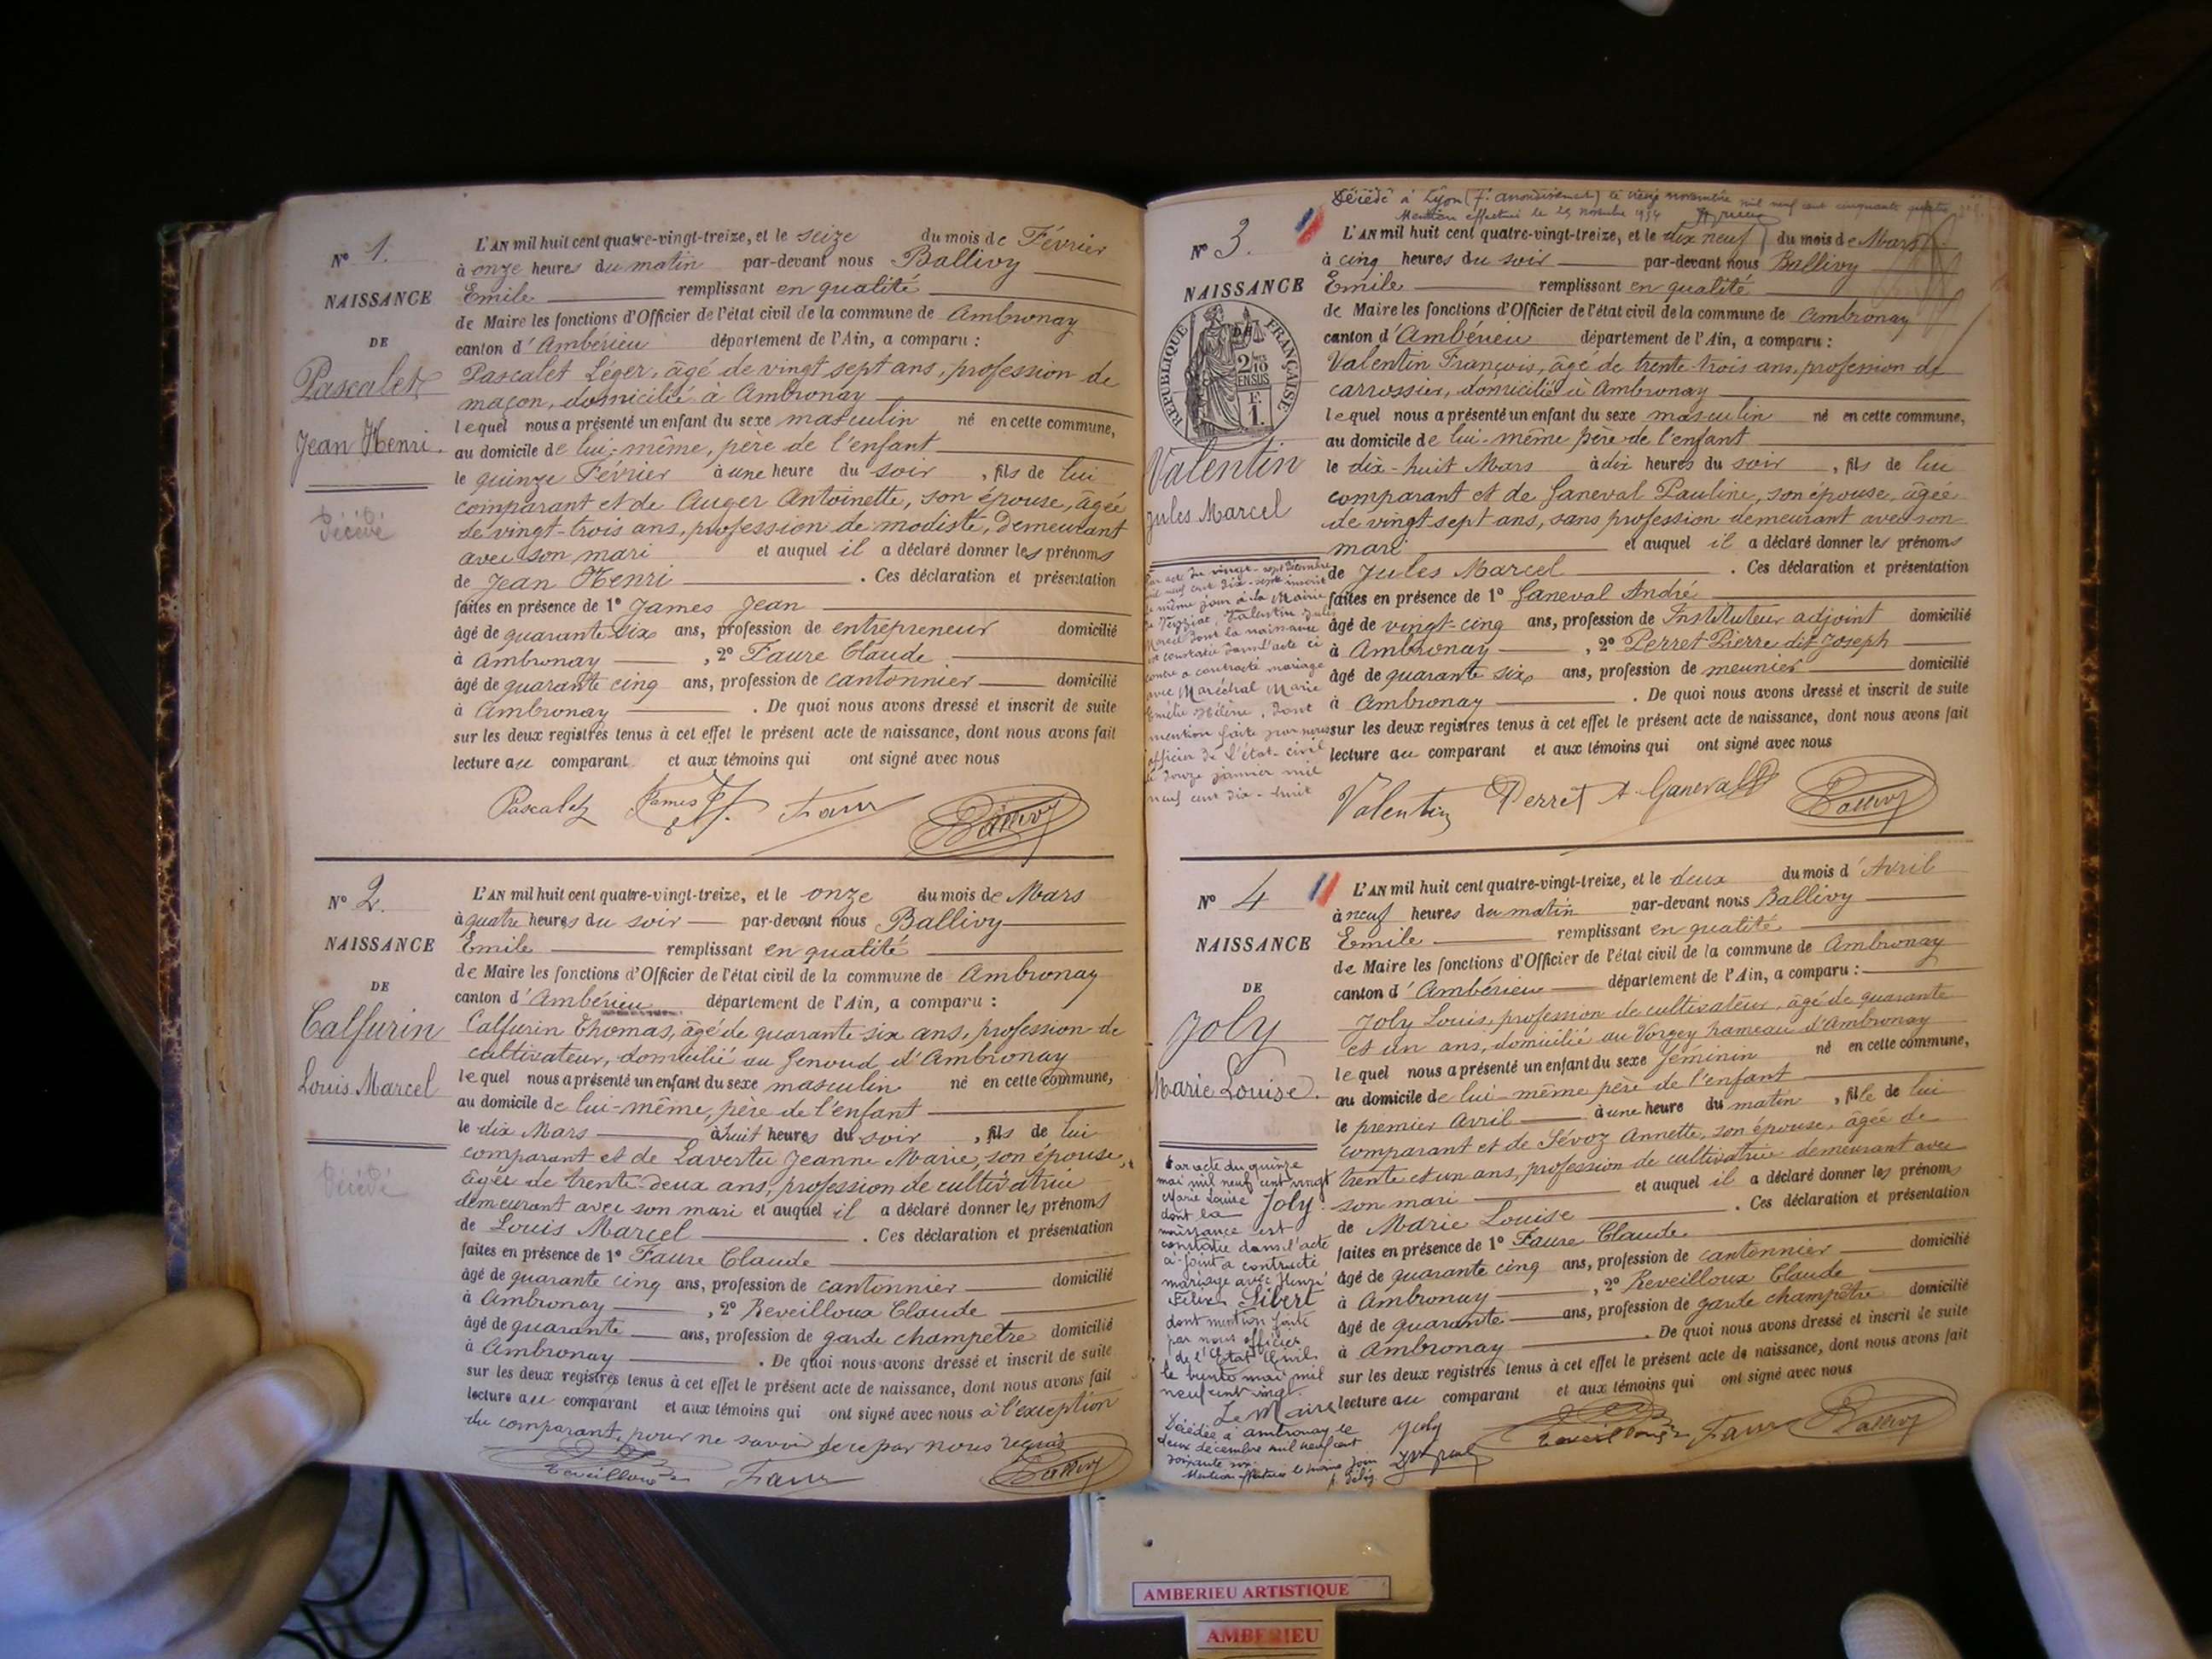 N° 1.
NAISSANCE
DE
Pascalet
Jean Henri.
Décédé
L'AN mil huit cent quatre-vingt-treize, et le seize du mois de Février
à onze heures du matin par-devant nous Ballivy
Emile remplissant en qualité
de Maire les fonctions d'Officier de l'état civil de la commune de Ambronay
canton d'Ambérieu département de l'Ain, a comparu :
Pascalet Léger, âgé de vingt sept ans, profession de
maçon, domicilié à Ambronay
lequel nous a présenté un enfant du sexe masculin né en cette commune,
au domicile de lui-même, père de l'enfant
le quinze Février à une heure du soir, fils de lui
comparant et de Auger Antoinette, son épouse, âgée
de vingt-trois ans, profession de modiste, demeurant
avec son mari et auquel il a déclaré donner les prénoms
de Jean Henri. Ces déclaration et présentation
faites en présence de 1° James Jean
âgé de quarante six ans, profession de entrepreneur domicilié
à Ambronay, 2° Faure Claude
âgé de quarante cinq ans, profession de cantonnier domicilié
à Ambronay. De quoi nous avons dressé et inscrit de suite
sur les deux registres tenus à cet effet le présent acte de naissance, dont nous avons fait
lecture au comparant et aux témoins qui ont signé avec nous
Pascalet James Faure Ballivy
N° 2.
NAISSANCE
DE
Calfurin
Louis Marcel
Décédé
L'AN mil huit cent quatre-vingt-treize, et le onze du mois de Mars
à quatre heures du soir par-devant nous Ballivy
Emile remplissant en qualité
de Maire les fonctions d'Officier de l'état civil de la commune de Ambronay
canton d'Ambérieu département de l'Ain, a comparu :
Calfurin Thomas, âgé de quarante six ans, profession de
cultivateur, domicilié au Genoud d'Ambronay
lequel nous a présenté un enfant du sexe masculin né en cette commune,
au domicile de lui-même, père de l'enfant
le dix Mars à huit heures du soir, fils de lui
comparant et de Lavertu Jeanne Marie, son épouse,
âgée de trente-deux ans, profession de cultivatrice
demeurant avec son mari et auquel il a déclaré donner les prénoms
de Louis Marcel. Ces déclaration et présentation
faites en présence de 1° Faure Claude
âgé de quarante cinq ans, profession de cantonnier domicilié
à Ambronay, 2° Reveilloux Claude
âgé de quarante ans, profession de garde champêtre domicilié
à Ambronay. De quoi nous avons dressé et inscrit de suite
sur les deux registres tenus à cet effet le présent acte de naissance, dont nous avons fait
lecture au comparant et aux témoins qui ont signé avec nous à l'exception
du comparant, pour ne savoir de ce par nous requis
Reveilloux Faure Ballivy
Décédé à Lyon (7e arrondissement) le treize novembre mil neuf cent cinquante quatre
Mention effectuée le 25 novembre 1954
N° 3.
NAISSANCE
DE
RÉPUBLIQUE FRANÇAISE
2/10 EN SUS
F. 1.
Valentin
Jules Marcel
Par acte du vingt-sept Décembre
mil neuf cent dix-sept inscrit
le même jour à la Mairie
de Valentin Jules
Marcel dont la naissance
est constatée dans l'acte ci
contre a contracté mariage
avec Maréchal Marie
Emélie Hélène, dont
mention faite par nous
officier de l'état-civil
le douze janvier mil
neuf cent dix-huit
L'AN mil huit cent quatre-vingt-treize, et le dix neuf du mois de Mars
à cinq heures du soir par-devant nous Ballivy
Emile remplissant en qualité
de Maire les fonctions d'Officier de l'état civil de la commune de Ambronay
canton d'Ambérieu département de l'Ain, a comparu :
Valentin François, âgé de trente trois ans, profession de
carrossier, domicilié à Ambronay
lequel nous a présenté un enfant du sexe masculin né en cette commune,
au domicile de lui-même père de l'enfant
le dix-huit Mars à dix heures du soir, fils de lui
comparant et de Ganeval Pauline, son épouse, âgée
de vingt sept ans, sans profession demeurant avec son
mari et auquel il a déclaré donner les prénoms
de Jules Marcel. Ces déclaration et présentation
faites en présence de 1° Ganeval André
âgé de vingt-cinq ans, profession de Instituteur adjoint domicilié
à Ambronay, 2° Perret Pierre dit Joseph
âgé de quarante six ans, profession de meunier domicilié
à Ambronay. De quoi nous avons dressé et inscrit de suite
sur les deux registres tenus à cet effet le présent acte de naissance, dont nous avons fait
lecture au comparant et aux témoins qui ont signé avec nous
Valentin Perret A. Ganeval Ballivy
N° 4
NAISSANCE
DE
Joly
Marie Louise.
Par acte du quinze
mai mil neuf cent vingt
Marie Louise Joly
dont la
naissance est
constatée dans l'acte
ci-joint a contracté
mariage avec Henri
Félix Libert
dont mention faite
par nous officier
de l'Etat Civil
le trente mai mil
neuf cent vingt.
Le Maire
Décédée à Ambronay le
deux décembre mil neuf cent
soixante six.
Mention effectuée le même jour
L'AN mil huit cent quatre-vingt-treize, et le deux du mois d'Avril
à neuf heures du matin par-devant nous Ballivy
Emile remplissant en qualité
de Maire les fonctions d'Officier de l'état civil de la commune de Ambronay
canton d'Ambérieu département de l'Ain, a comparu :
Joly Louis, profession de cultivateur, âgé de quarante
et un ans, domicilié au Vorgey hameau d'Ambronay
lequel nous a présenté un enfant du sexe féminin né en cette commune,
au domicile de lui-même père de l'enfant
le premier Avril à une heure du matin, fille de lui
comparant et de Sévoz Annette, son épouse, âgée de
trente et un ans, profession de cultivatrice demeurant avec
son mari et auquel il a déclaré donner les prénoms
de Marie Louise. Ces déclaration et présentation
faites en présence de 1° Faure Claude
âgé de quarante cinq ans, profession de cantonnier domicilié
à Ambronay, 2° Reveilloux Claude
âgé de quarante ans, profession de garde champêtre domicilié
à Ambronay. De quoi nous avons dressé et inscrit de suite
sur les deux registres tenus à cet effet le présent acte de naissance, dont nous avons fait
lecture au comparant et aux témoins qui ont signé avec nous
Joly Reveilloux Faure Ballivy
AMBERIEU ARTISTIQUE
AMBERIEU